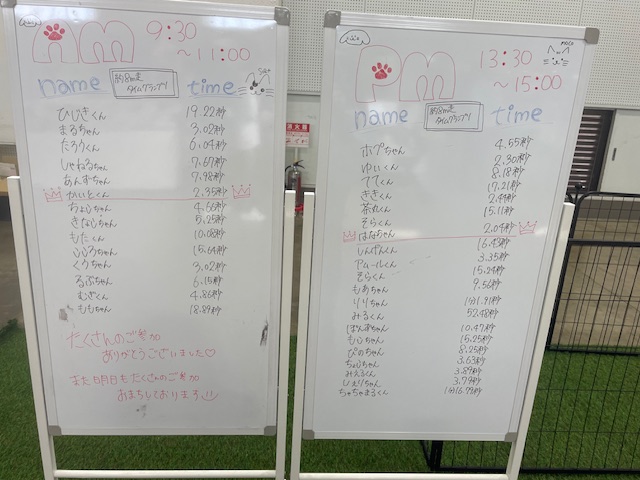 AM 9:30
～11:00
name 約8m走
タイムグランプリ time
ひじきくん 19.22秒
まるちゃん 3.02秒
たろうくん 6.04秒
しゃねるちゃん 7.67秒
あんずちゃん 7.98秒
かいとくん 2.35秒
ちょじちゃん 4.66秒
きなじちゃん 5.25秒
もたくん 10.08秒
こころちゃん 15.64秒
くうちゃん 3.02秒
るぶちゃん 6.15秒
むさくん 4.86秒
ももちゃん 18.89秒
たくさんのご参加
ありがとうございました♡
また明日もたくさんのご参加
おまちしております
PM 13:30
～15:00
name 約8m走
タイムグランプリ time
ホプちゃん 4.55秒
ゆいくん 2.30秒
ててくん 8.18秒
ききくん 17.21秒
茶丸くん 2.44秒
そらくん 15.11秒
はなちゃん 2.04秒
しんげんくん 16.43秒
アムールくん 3.35秒
そらくん 15.24秒
もあちゃん 9.56秒
りりちゃん 1分1.91秒
みるくん 52.48秒
ぱんずちゃん 10.47秒
もこちゃん 15.25秒
ぴのちゃん 8.25秒
ちょこちゃん 3.63秒
みえるくん 3.89秒
しぇりちゃん 3.79秒
ちゃちゃまるくん 1分16.79秒
消火器